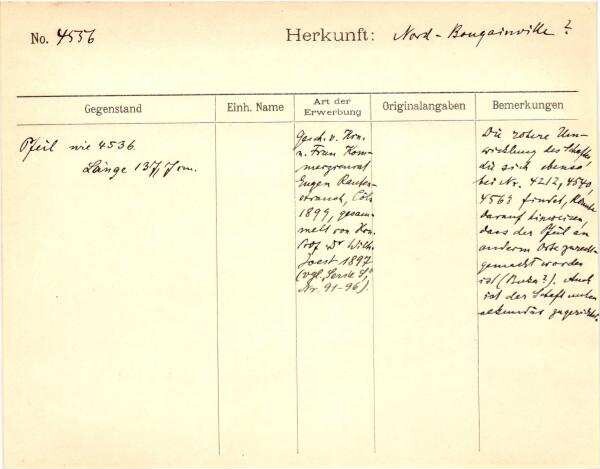 No. 4556 Herkunft: Nord-Bougainville?
Gegenstand
Einh. Name
Art der
Erwerbung
Originalangaben
Bemerkungen
Pfeil wie 4536.
Länge 137,7 cm.
Gesch. v. Hrn.
u. Frau Kom-
merzienrat
Eugen Rauten-
strauch, Cöln
1899, gesam-
melt von Hrn.
Prof. Dr Wilh.
Joest 1897
(vgl. Serie S,
Nr. 91-96).
Die rohere Um-
wicklung des Schaftes
die sich ebenso
bei Nr. 4212, 4540,
4563 findet, könnte
darauf hinweisen,
dass der Pfeil an
anderm Orte zurecht-
gemacht worden
ist (Buka?). Auch
ist der Schaft unten
sekundär zugerichtet.